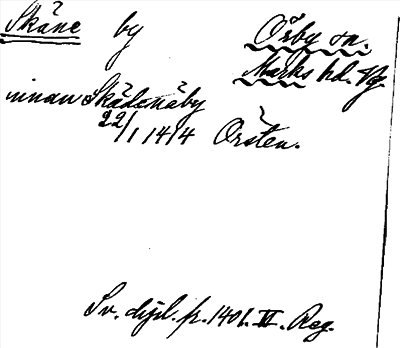 Skäne by Örby sn.
Marks hd. Vg.
innan Skädenäby
22/1 1414 Orsten.
Sv. dipl. fr. 1401. II. Reg.